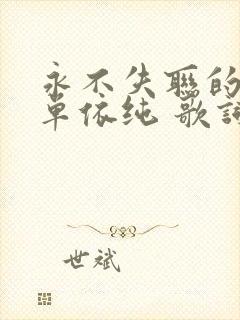 永不失联的
单依纯 歌词
世斌